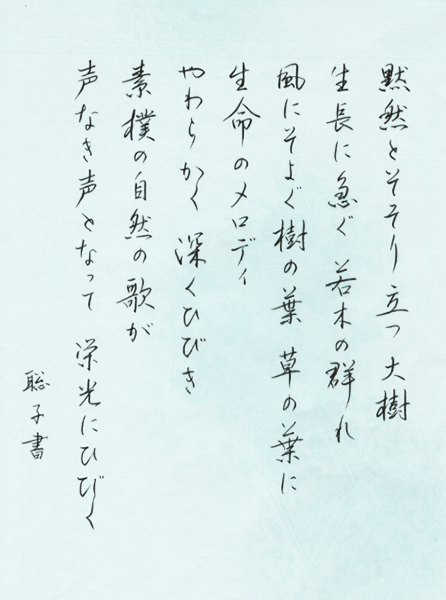 黙然とそそり立つ 大樹
生長に急ぐ 若木の群れ
風にそよぐ樹の葉 草の葉に
生命のメロディ
やわらかく 深くひびき
素樸の自然の歌が
声なき声となって 栄光にひびく
聡子書